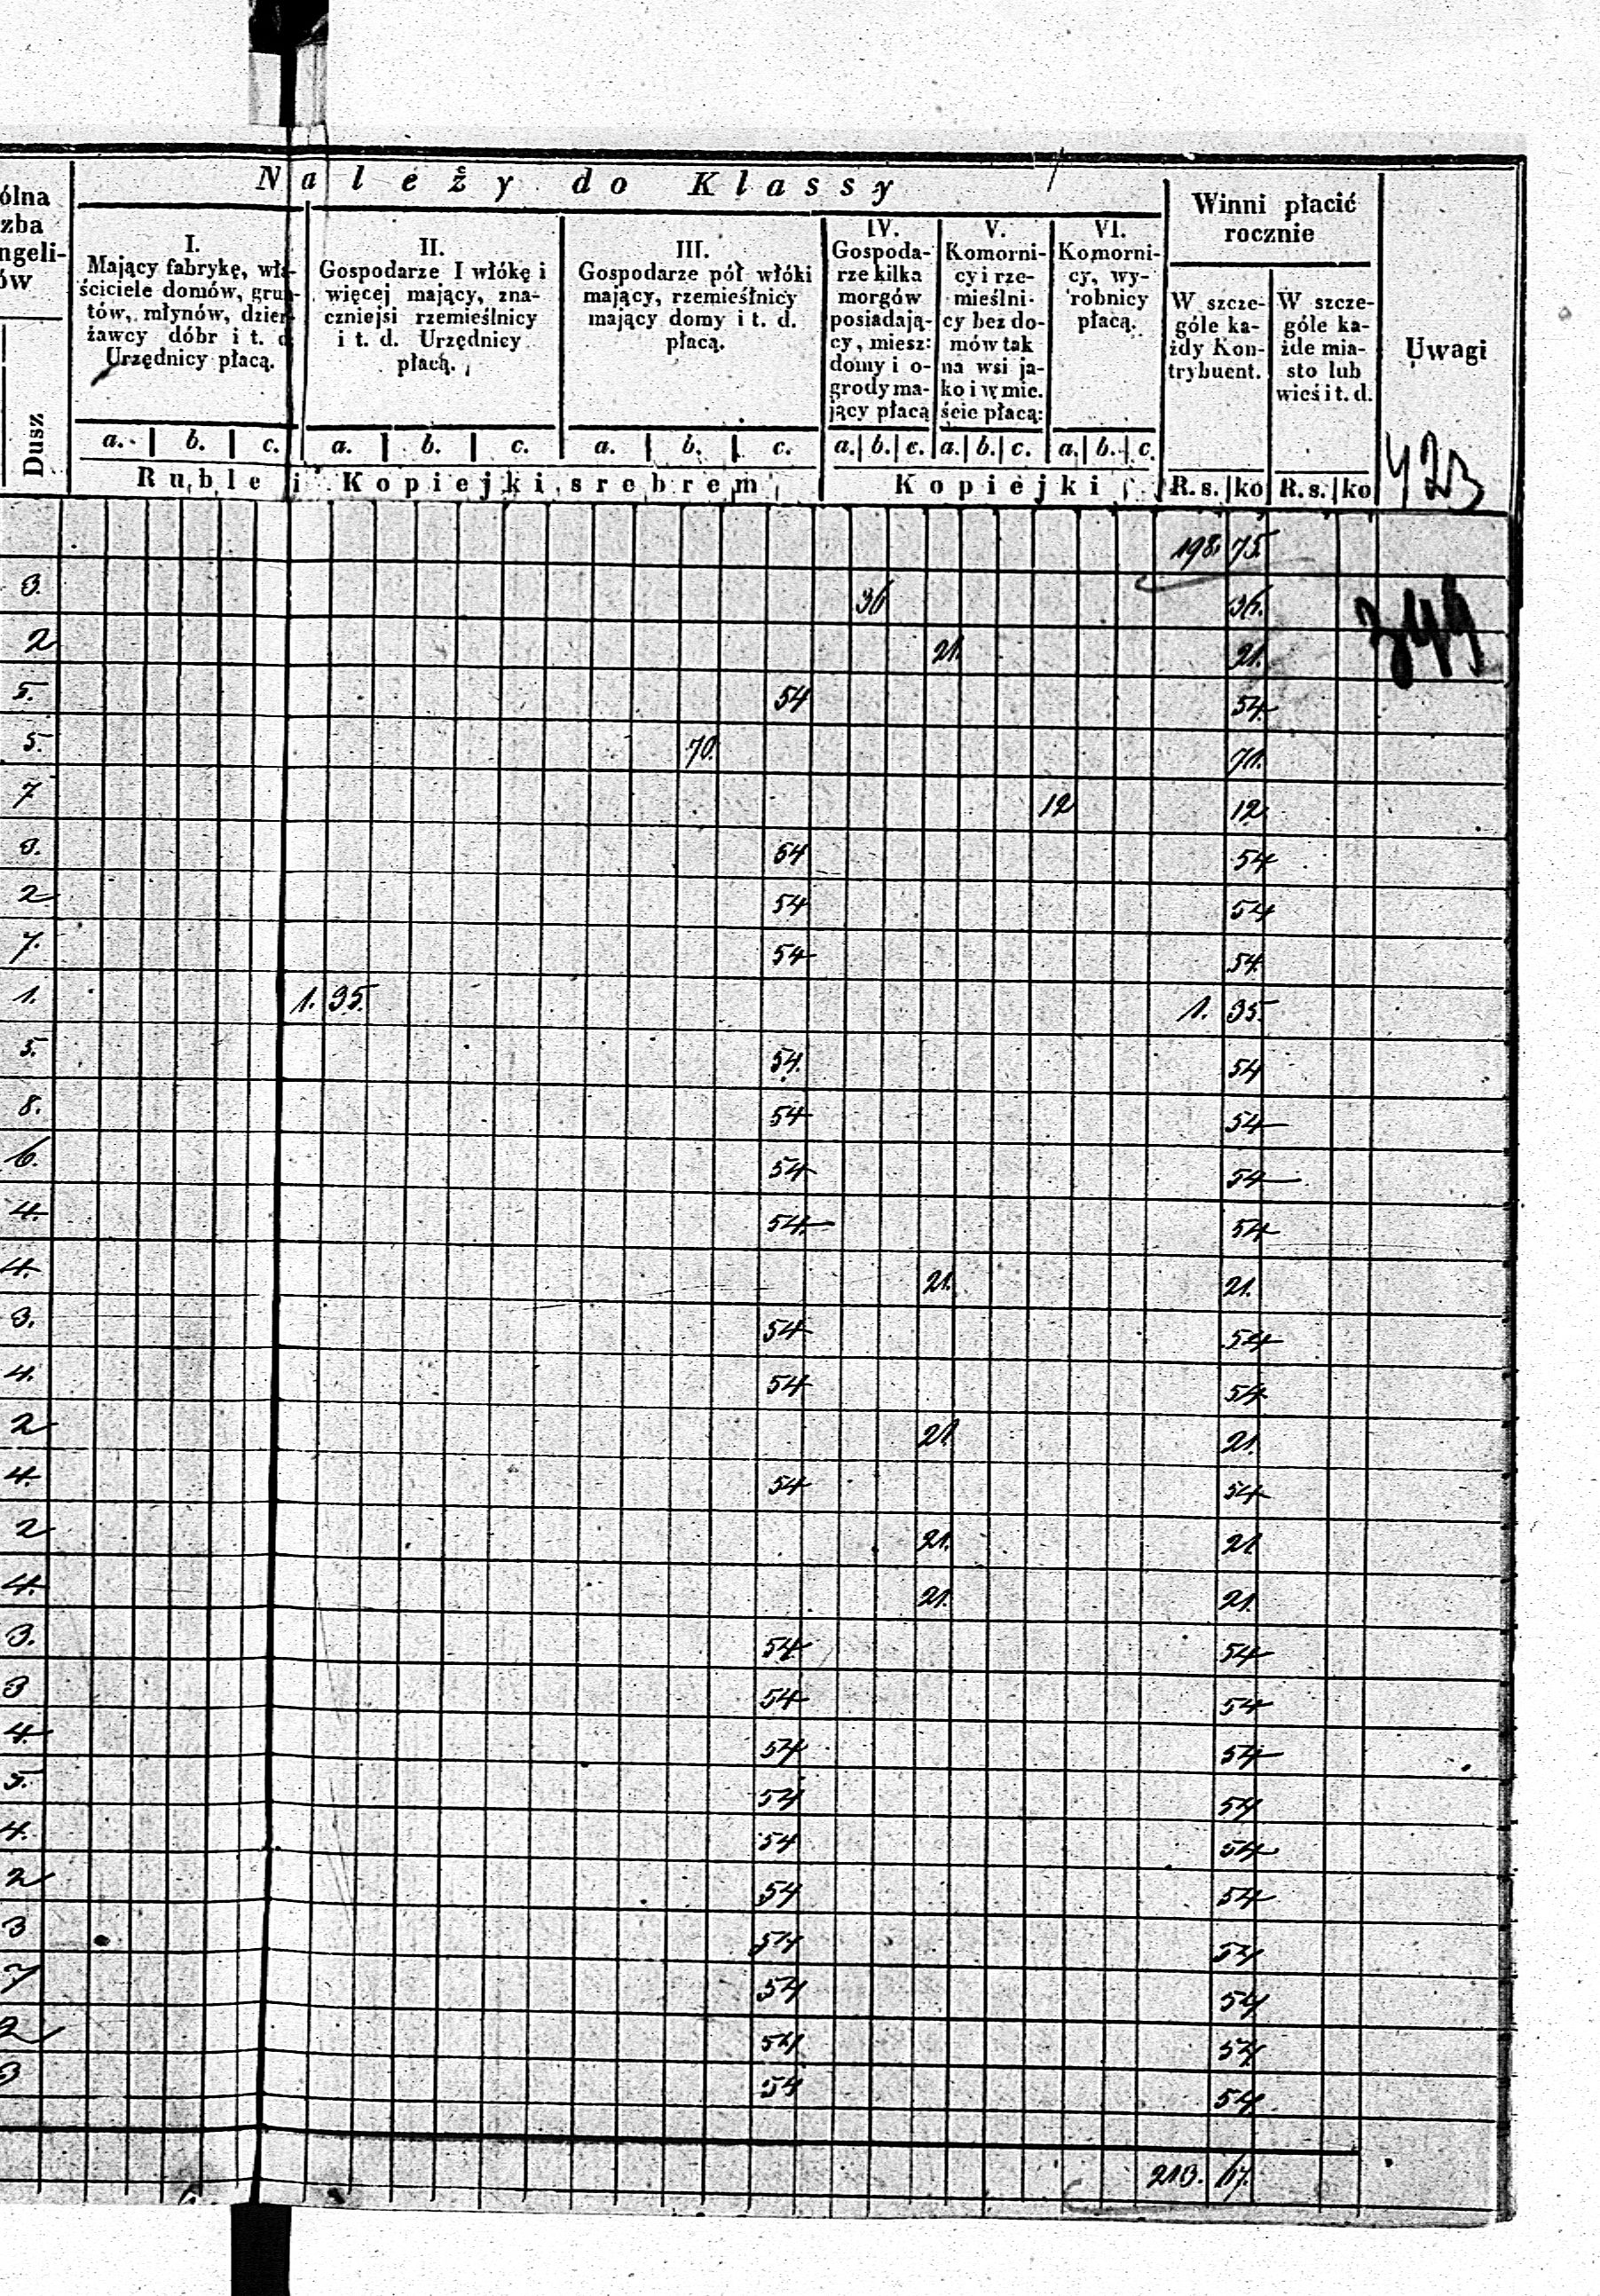 Należy do Klassy
ólna
zba
ngeli-
ów
Dusz
I.
Mający fabrykę, wła-
ściciele domów, grun-
tów, młynów, dzier-
żawcy dóbr i t. d.
Urzędnicy płacą.
a. b. c.
II.
Gospodarze I włókę i
więcej mający, zna-
czniejsi rzemieślnicy
i t. d. Urzędnicy
płacą.
a. b. c.
III.
Gospodarze pół włóki
mający, rzemieślnicy
mający domy i t. d.
płacą.
a. b. c.
IV.
Gospoda-
rze kilka
morgów
posiadają-
cy, miesz:
domy i o-
grody ma-
jący płacą
a. b. c.
V.
Komorni-
cy i rze-
mieślni-
cy bez do-
mów tak
na wsi ja-
ko i w mie.
ście płacą:
a. b. c.
VI.
Komorni-
cy, wy-
robnicy
płacą.
a. b. c.
Winni płacić
rocznie
W szcze-
góle ka-
żdy Kon-
trybuent.
W szcze-
góle ka-
żde mia-
sto lub
wieś i t. d.
Uwagi
Ruble i Kopiejki srebrem
Kopiejki
R. s. ko R. s. ko
423
198. 75.
3. 36 36.
344
2 21. 21.
5. 54 54
5. 70. 70.
7 12 12
3. 54 54
2 54 54
7. 54 54
1. 1. 35. 1. 35.
5. 54. 54
8. 54 54
6. 54 54
4. 54 54
4. 21. 21.
3. 54 54
4. 54 54
2 21. 21.
4. 54 54
2 21. 21
4. 21. 21.
3. 54 54
3 54 54
4 54 54
5. 54 54
4. 54 54
2 54 54
3 54 54
7 54 54
2 54 54
3 54 54
213. 67.